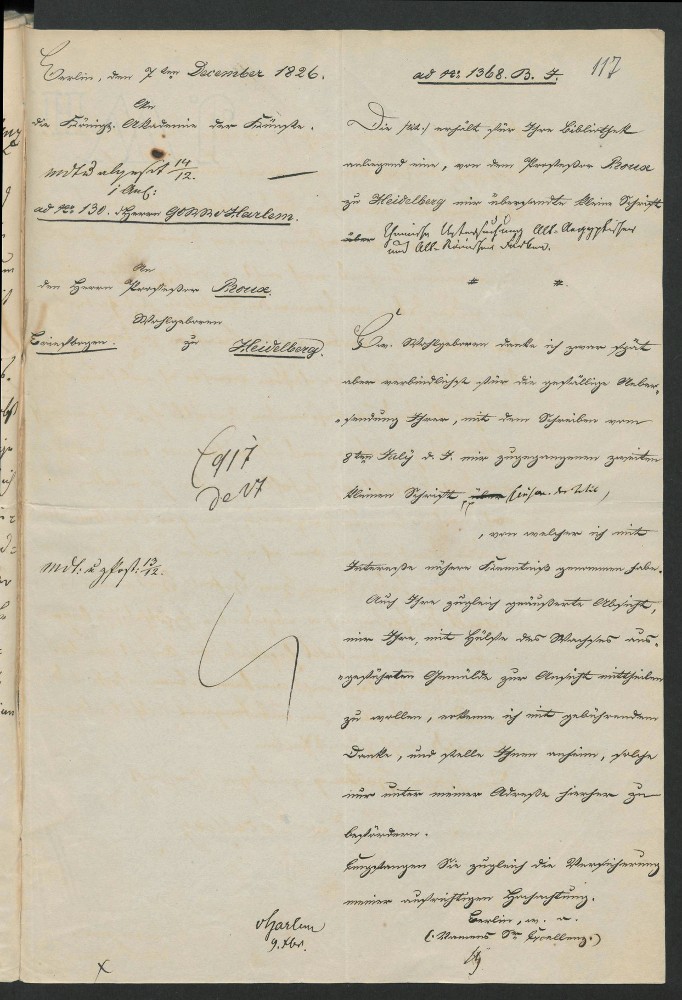 Berlin, den 7ten December 1826.
An
die Königl. Akademie der Künste.
mdt 14/12.
1 Anl:
ad No 130. Herrn v Harlem.
An
den Herrn Professor Roux
Wohlgeboren
zu Heidelberg.
mdt: u z Post: 13/12.
v Harlem
9. Xbr.
ad No 1368. B. J. 117
Die (tit:) erhält für Ihre Bibliothek
anliegend eine, von dem Professor Roux
zu Heidelberg mir übersandte kleine Schrift
über chemische Untersuchung Alt-Aegyptischer
und Alt-Römischer Farben.
Ew. Wohlgeboren danke ich zwar spät
aber verbindlichst für die gefällige Ueber-
sendung Ihrer, mit dem Schreiben vom
8ten July d. J. mir zugegangenen zweiten
kleinen Schrift
, von welcher ich mit
Interesse nähere Kenntniß genommen habe.
Auch Ihre zugleich geäußerte Absicht,
mir Ihre, mit Hülfe des Wachses aus-
geführten Gemälde zur Ansicht mittheilen
zu wollen, erkenne ich mit gebührendem
Danke, und stelle Ihnen anheim, solche
nur unter meiner Adresse hierher zu
befördern.
Empfangen Sie zugleich die Versicherung
meiner aufrichtigen Hochachtung.
Berlin, w. o.
(: Namens Sr Excellenz :)